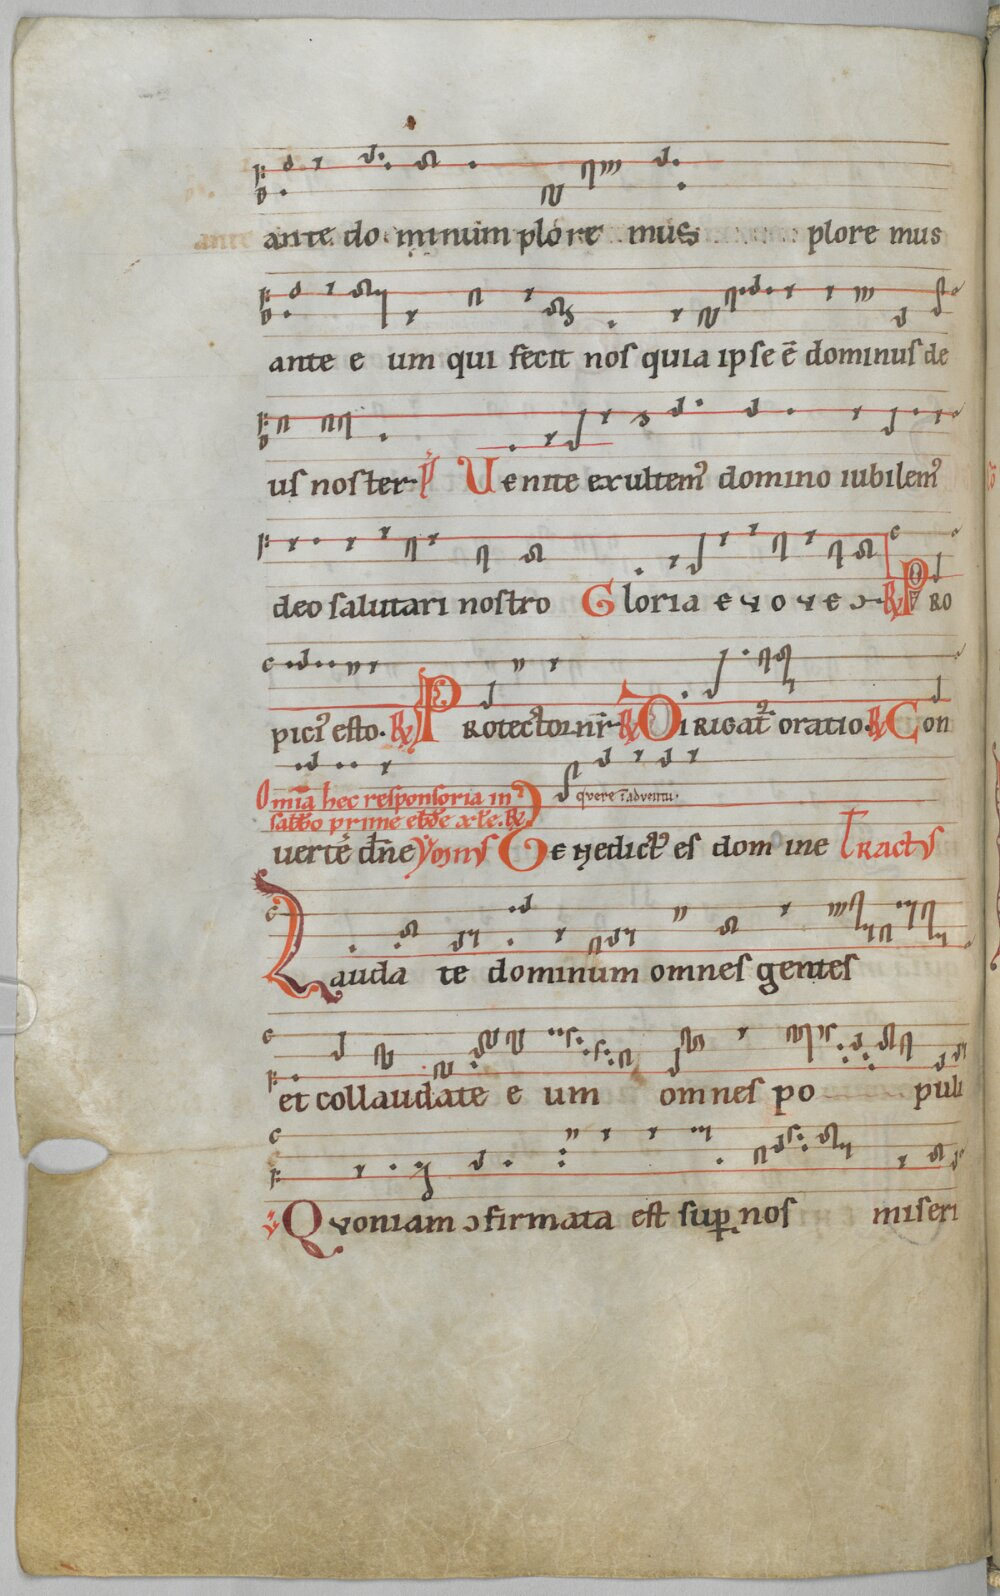 ante do minum plore mus plore mus
ante e um qui fecit nos quia ipse ē dominus de
us noster ℣ Uenite exultem᷒ domino iubilem᷒
deo salutari nostro Gloria e v o v e ℞ PRO
pici᷒ esto. ℞ PRotector nr̄ ℞ DiRiGat᷒ oratio. ℞ Con
Omīa hec responsoria in
quere ī adventu.
sabb̄o prime ebd̄e
uerte dn̄e Ymn᷒ Benedict᷒ es dom ine Tract᷒
Lauda te dominum omnes gentes
et collaudate e um omnes po puli
℣ Qvoniam ɔfirmata est suꝑ nos miseri